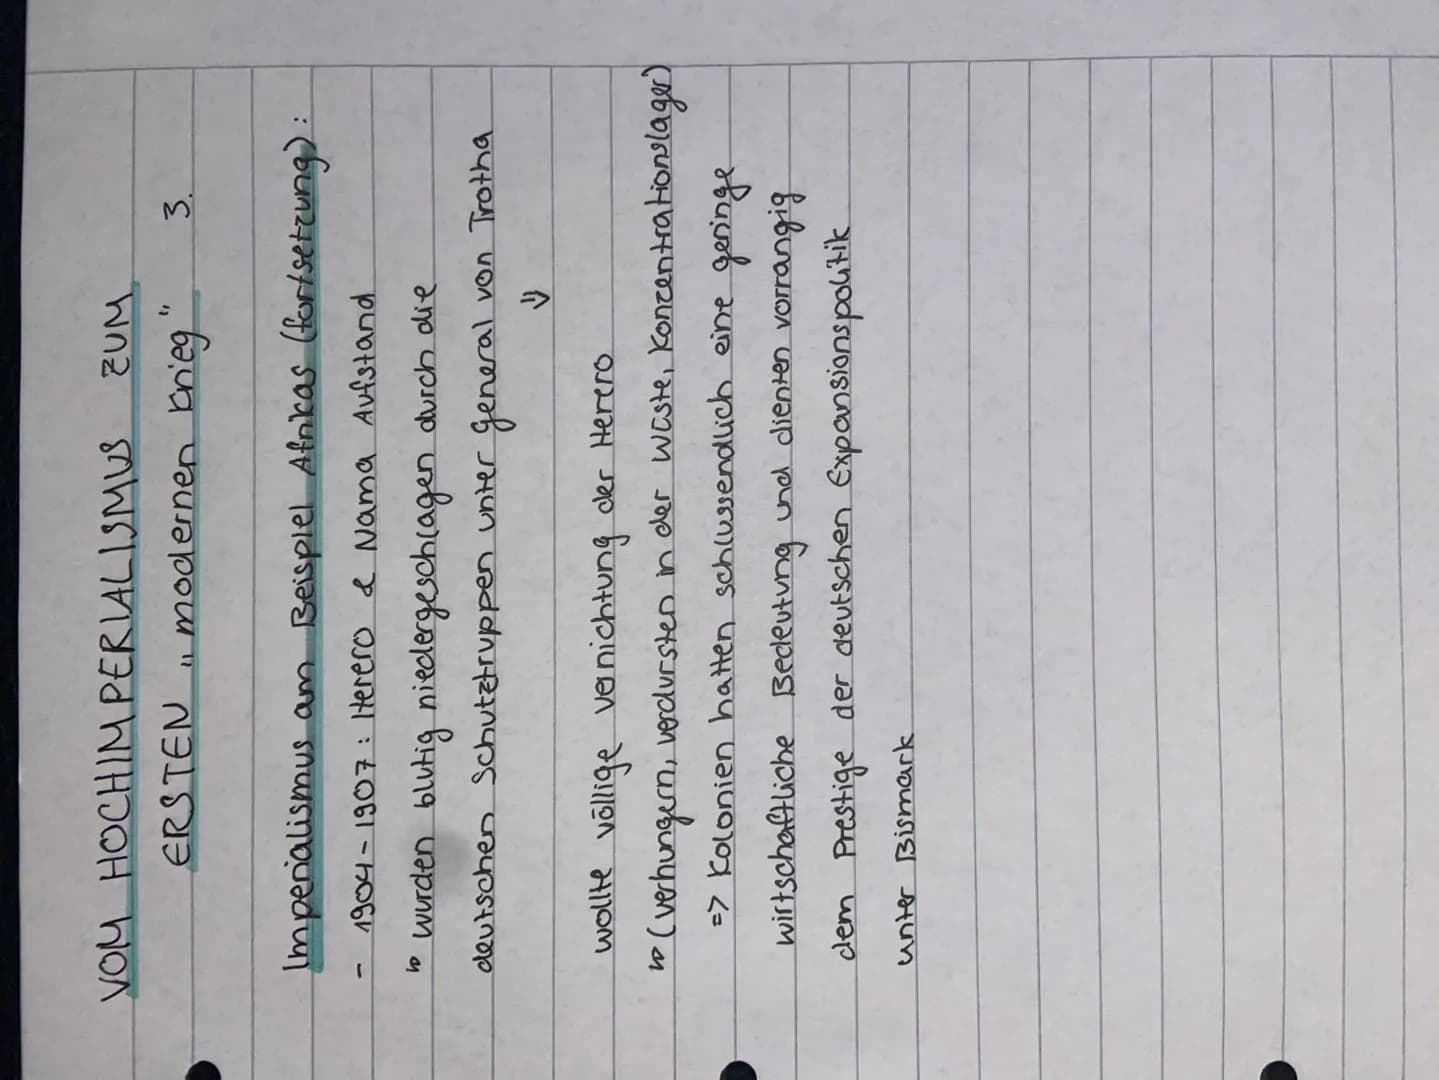 VOM HOCHIMPERIALISMUS ZUM
ERSTEN „modernen Krieg" 3.
Imperialismus am Beispiel Afrikas (fortsetzung):
- 1904-1907: Herero & Nama Aufstand
↳ wurden blutig niedergeschlagen durch die
deutschen Schutztruppen unter General von Trotha
⇓
wollte völlige vernichtung der Herero
↳ (verhungern, verdursten in der Wüste, Konzentrationslager)
=> Kolonien hatten schlussendlich eine geringe
wirtschaftliche Bedeutung und dienten vorrangig
dem Prestige der deutschen Expansionspolitik
unter Bismark